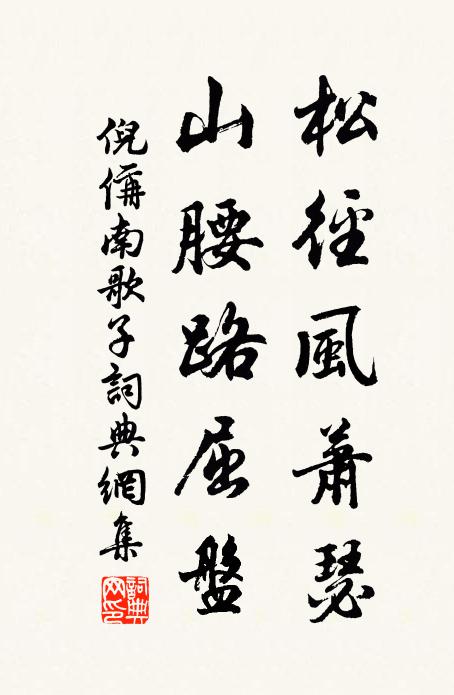 松徑風蕭瑟
山腰路屈盤
倪偁南歌子詞典網集
詞典網印